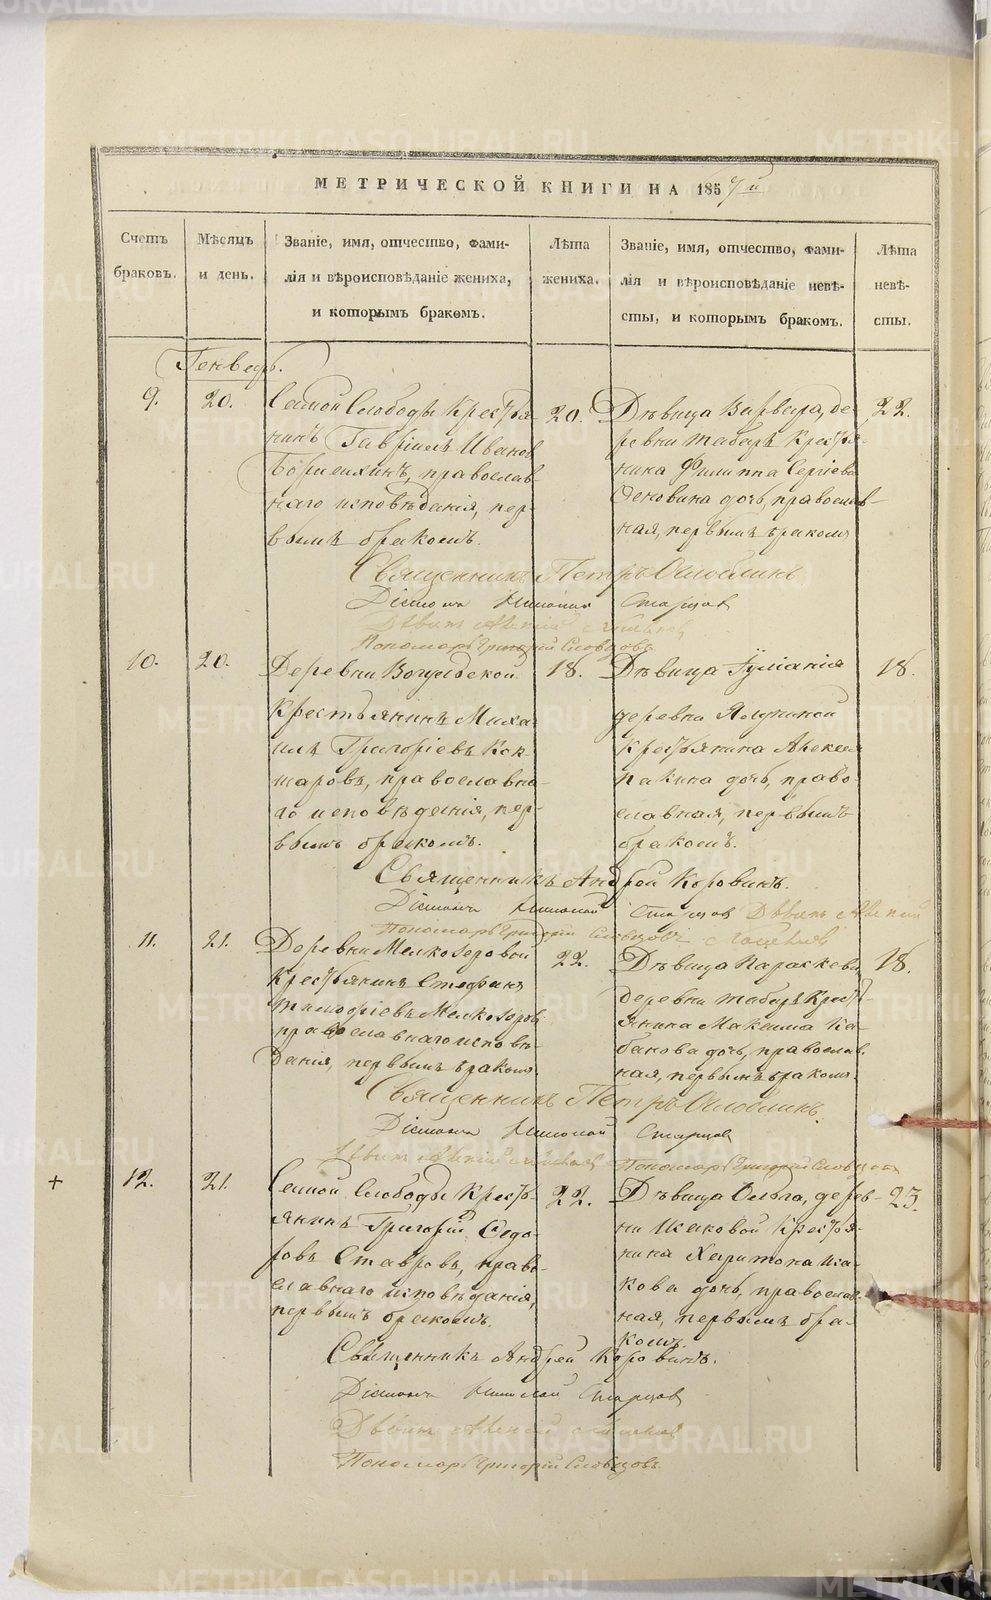 МЕТРИЧЕСКОЙ КНИГИ НА 1857й
Счетъ
браковъ.
Мѣсяцъ
и день.
Званіе, имя, отчество, фами-
лія и вѣроисповѣданіе жениха,
и которымъ бракомъ.
Лѣта
жениха.
Званіе, имя, отчество, фами-
лія и вѣроисповѣданіе невѣ-
сты, и которымъ бракомъ.
Лѣта
невѣ-
сты.
Генварь.
9.
20.
Самой Слободы Крестья-
нинъ Гавріилъ Ивановъ
православ-
наго исповѣданія, пер-
вымъ бракомъ.
20.
Дѣвица Варвара, де-
ревни Табаръ Крестья-
нина Филиппа Сергіева
дочь, православ-
ная, первымъ бракомъ
22.
Священникъ Петръ
Діаконъ Николай Старцов
Пономарь Григорій Словцовъ
10.
20.
Деревни Вогульской
Крестьянинъ Миха-
илъ Григоріевъ Кок-
шаровъ, православна-
го исповѣданія, пер-
вымъ бракомъ.
18.
Дѣвица Іуліанія
деревни
крестьянина Алексея
дочь, право-
славная, первымъ
бракомъ.
18.
Священникъ Андрей Коровинъ.
Діаконъ Николай Старцов
Пономарь Григорій Словцовъ
11.
21.
Деревни Мелкозеровой
Крестьянинъ Стефанъ
Тимофіевъ Мелкозеровъ
православнаго исповѣ-
данія, первымъ бракомъ.
22.
Дѣвица Параскева
деревни Табаръ Крест-
янина Максима Ка-
банова дочь, православ-
ная, первымъ бракомъ.
18.
Священникъ Петръ
Діаконъ Николай Старцов
Пономарь Григорій Словцовъ
+
12.
21.
Самой Слободы Кресть-
янинъ Григорій Седо-
ровъ Ставровъ, право-
славнаго исповѣданія,
первымъ бракомъ.
22.
Дѣвица Ольга, дерев-
ни Исаковой Крестья-
нина Харитона Иса-
кова дочь, православ-
ная, первымъ бра-
комъ.
23.
Священникъ Андрей Коровинъ.
Діаконъ Николай Старцов
Пономарь Григорій Словцовъ
METRIKI.GASO-URAL.RU